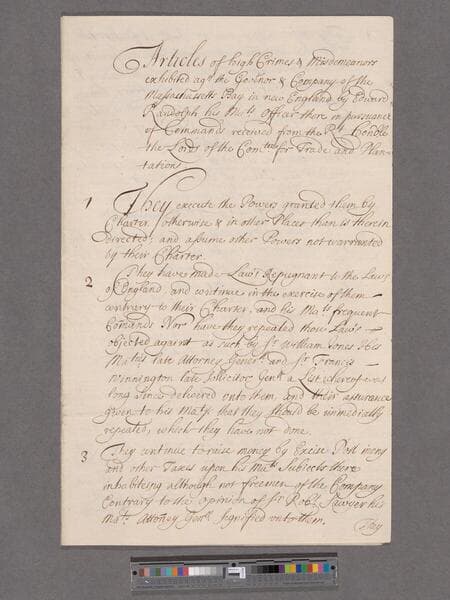 Articles of high Crimes & Misdemeanors
exhibited agt the Govenor & Company of the
Massachussetts Bay in new England by Edward
Randolph his Mats Officer there in pursuance
of Commands received from the Rt Honble
the Lords of the Comtee for Trade and Plan-
tations
1 They execute the Powers granted them by
Charter, otherwise & in other Places than is therein
directed; and assume other Powers not warranted
by their Charter.
2 They have made Laws Repugnant to the Laws
of England and continue in the exercise of them
contrary to their Charter, and his Mats frequent
Comands Nor have they repealed those Laws
objected against as such by Sr William Jones His
Mats late Attorney Generll and Sr Francis
Winnington late Sollicitor Genll a List whereof was
long since delivered unto them, and their assurance
given to his Maty that they should be immedially
repealed, which they have not done.
3 They continue to raise money by Excise Poll mony
and other Taxes upon his Mats Subjects there
inhabiteing although not freemen of the Company
Contrary to the opinion of Sr Robt Sawyer his
Mats Attorney Genll signified unto them.
They